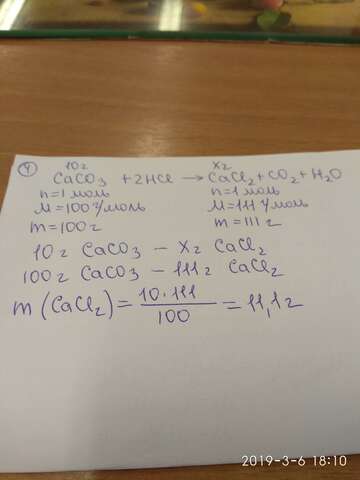 4
10г х г
CaCO3 + 2HCl → CaCl2 + CO2 + H2O
n=1 моль n=1 моль
M=100 г/моль M=111 г/моль
m=100г m=111 г
10г CaCO3 – х г CaCl2
100г CaCO3 – 111г CaCl2
m (CaCl2) = 10·111 / 100 = 11,1г
2019-3-6 18:10